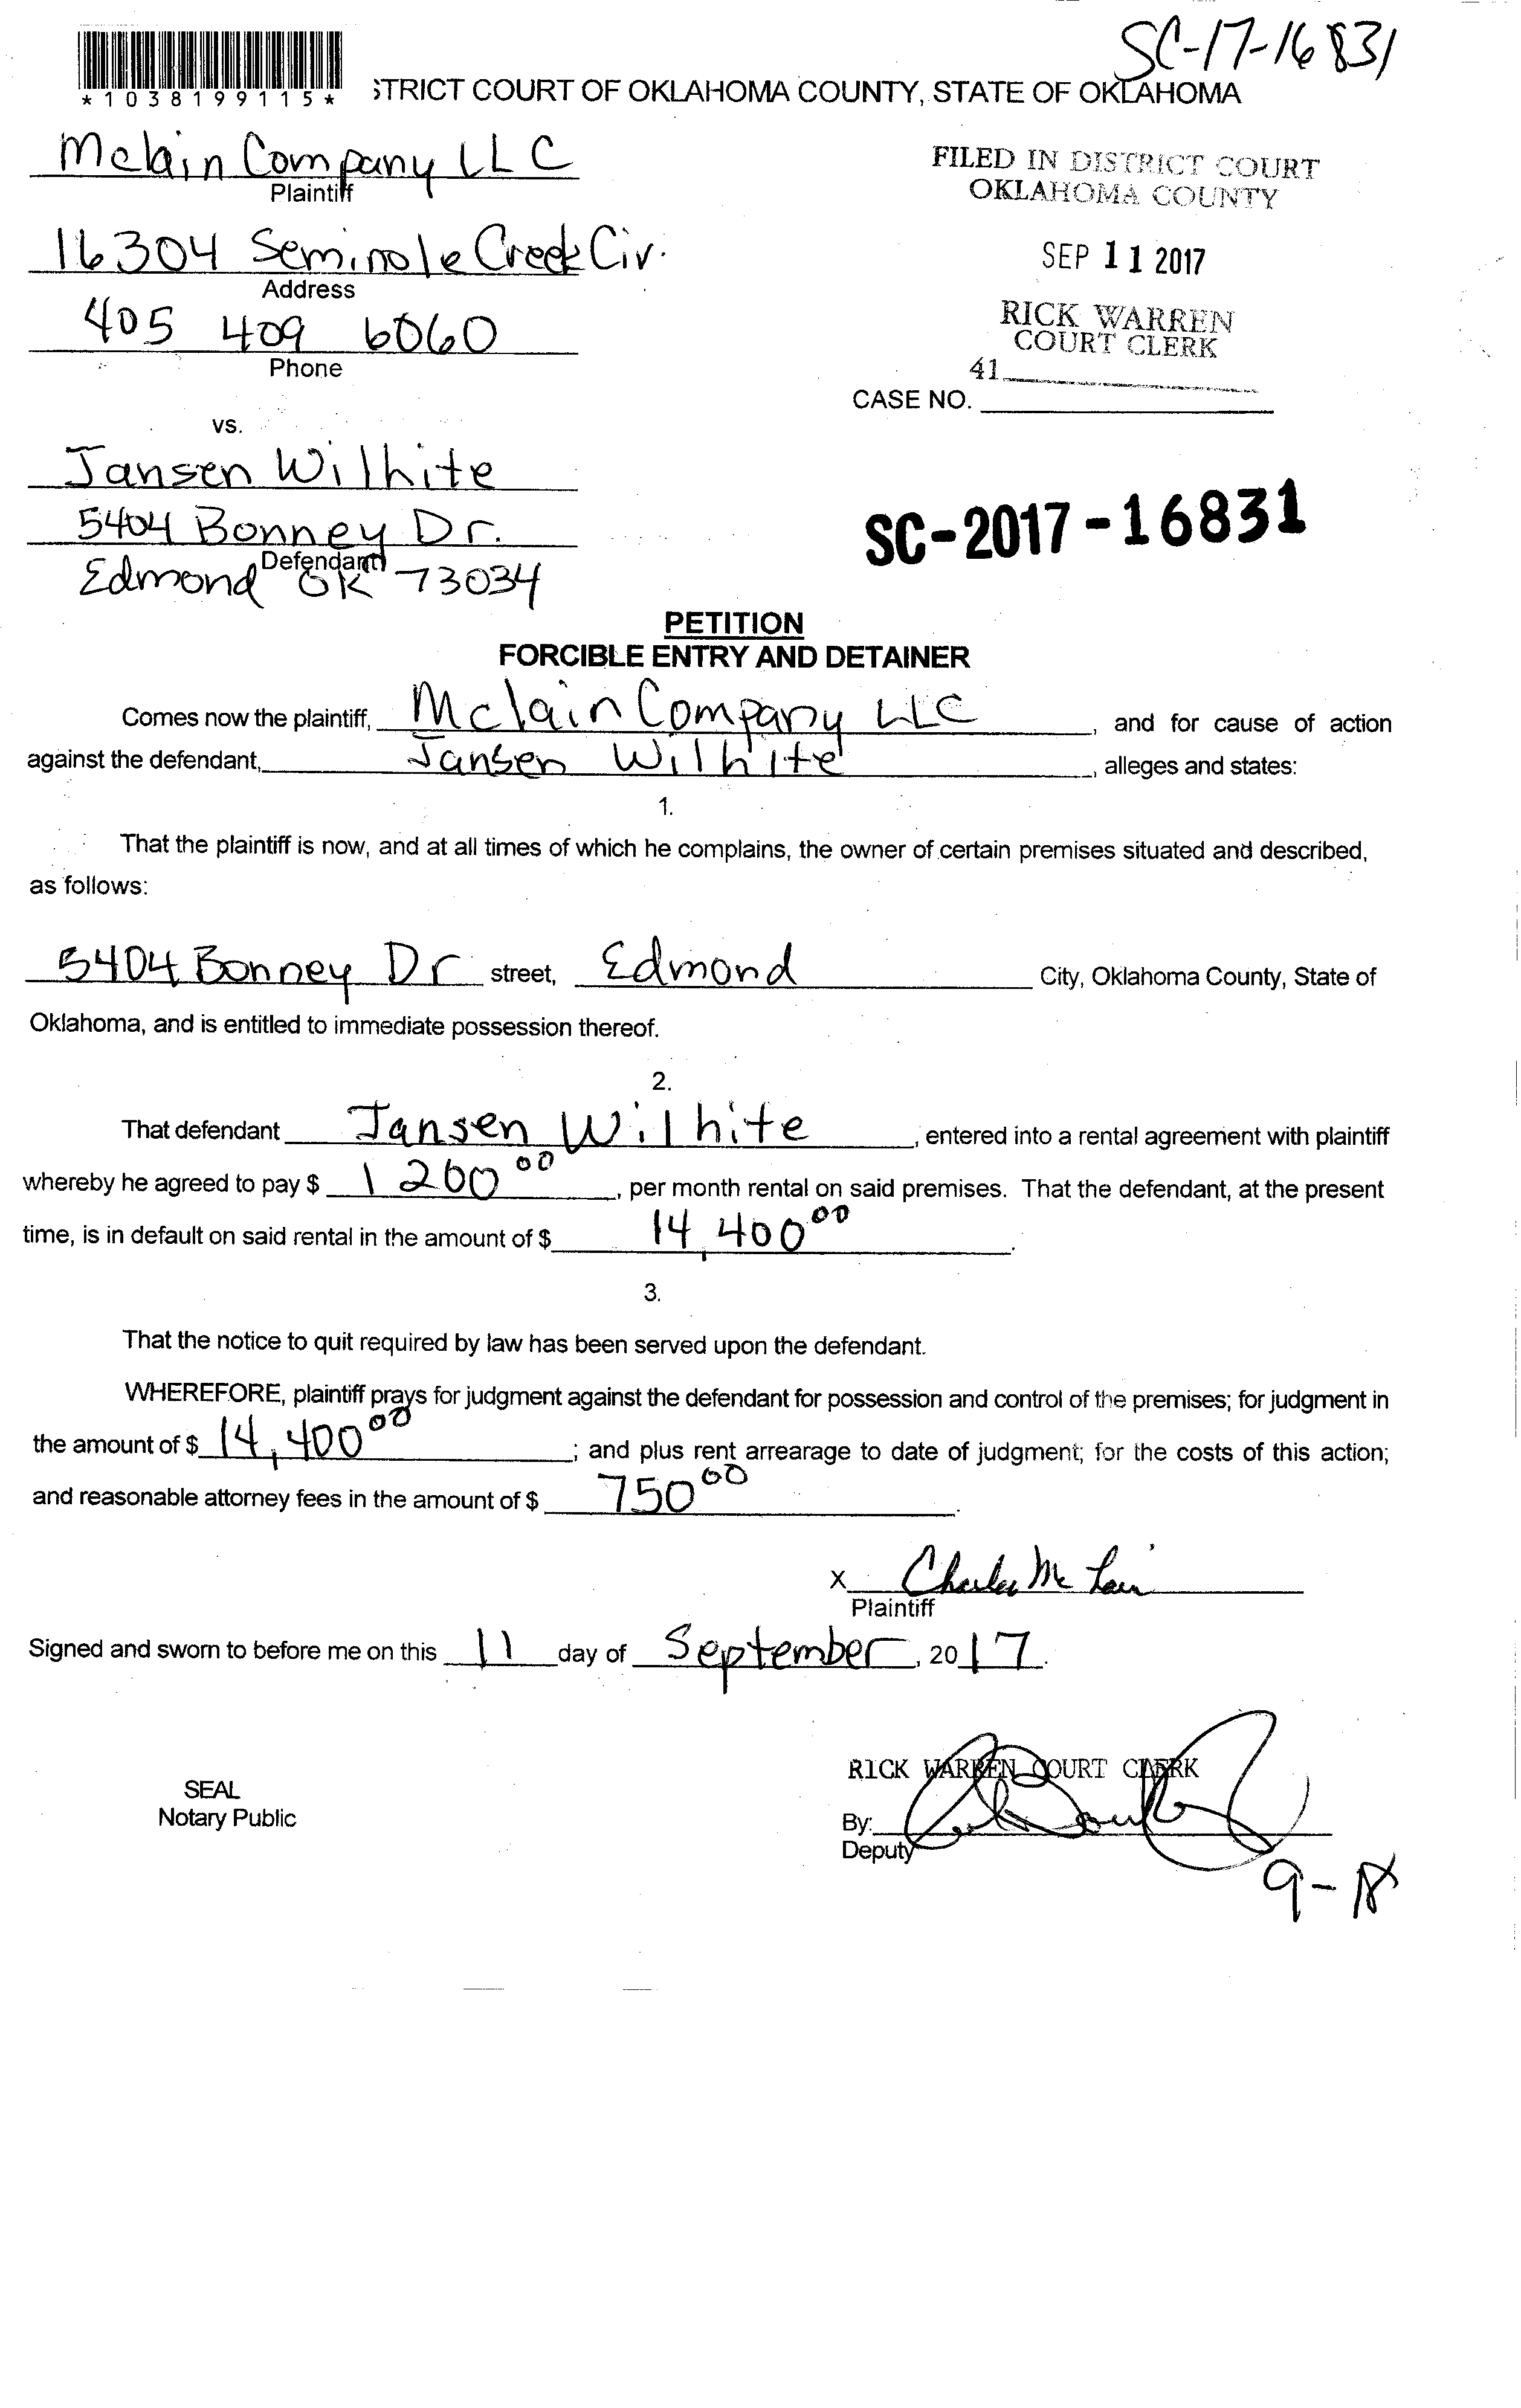 SC-17-16831
*1038199115*
STRICT COURT OF OKLAHOMA COUNTY, STATE OF OKLAHOMA
Mclain Company LLC
Plaintiff
FILED IN DISTRICT COURT
OKLAHOMA COUNTY
16304 Seminole Creek Cir.
Address
SEP 11 2017
405 409 6060
Phone
RICK WARREN
COURT CLERK
41
CASE NO.
vs.
Jansen Wilhite
5404 Bonney Dr.
Defendant
Edmond OK 73034
SC-2017-16831
PETITION
FORCIBLE ENTRY AND DETAINER
Comes now the plaintiff, Mclain Company LLC, and for cause of action
against the defendant, Jansen Wilhite, alleges and states:
1.
That the plaintiff is now, and at all times of which he complains, the owner of certain premises situated and described,
as follows:
5404 Bonney Dr street, Edmond City, Oklahoma County, State of
Oklahoma, and is entitled to immediate possession thereof.
2.
That defendant Jansen Wilhite, entered into a rental agreement with plaintiff
whereby he agreed to pay $ 1200 00, per month rental on said premises. That the defendant, at the present
time, is in default on said rental in the amount of $ 14,400 00.
3.
That the notice to quit required by law has been served upon the defendant.
WHEREFORE, plaintiff prays for judgment against the defendant for possession and control of the premises; for judgment in
the amount of $ 14,400 00; and plus rent arrearage to date of judgment; for the costs of this action;
and reasonable attorney fees in the amount of $ 750 00.
X Charles McLain
Plaintiff
Signed and sworn to before me on this 11 day of September, 2017.
RICK WARREN COURT CLERK
SEAL
Notary Public
By:
Deputy